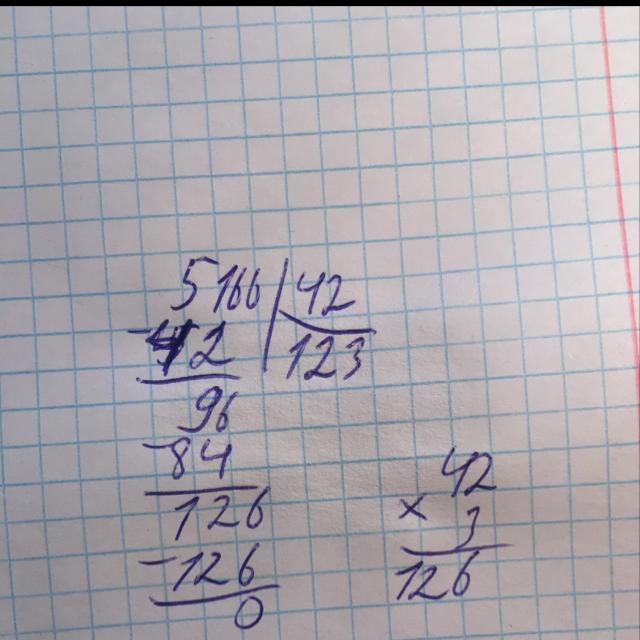 5166 42
-42 123
96
-84
126
-126
0
42
× 3
126